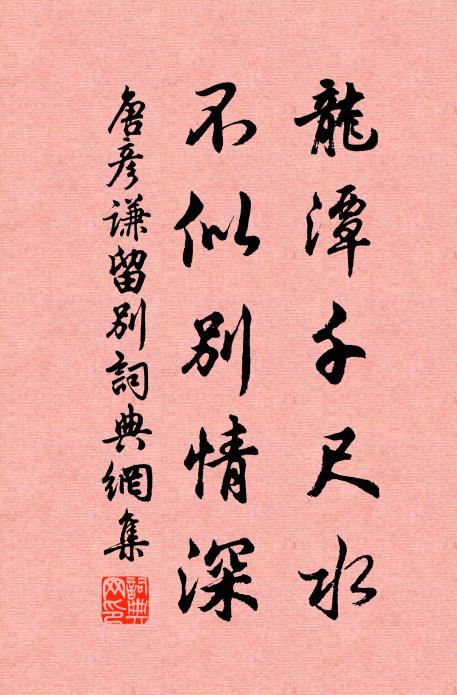 龍潭千尺水
不似別情深
唐彥謙留別詞典網集
詞典
網印